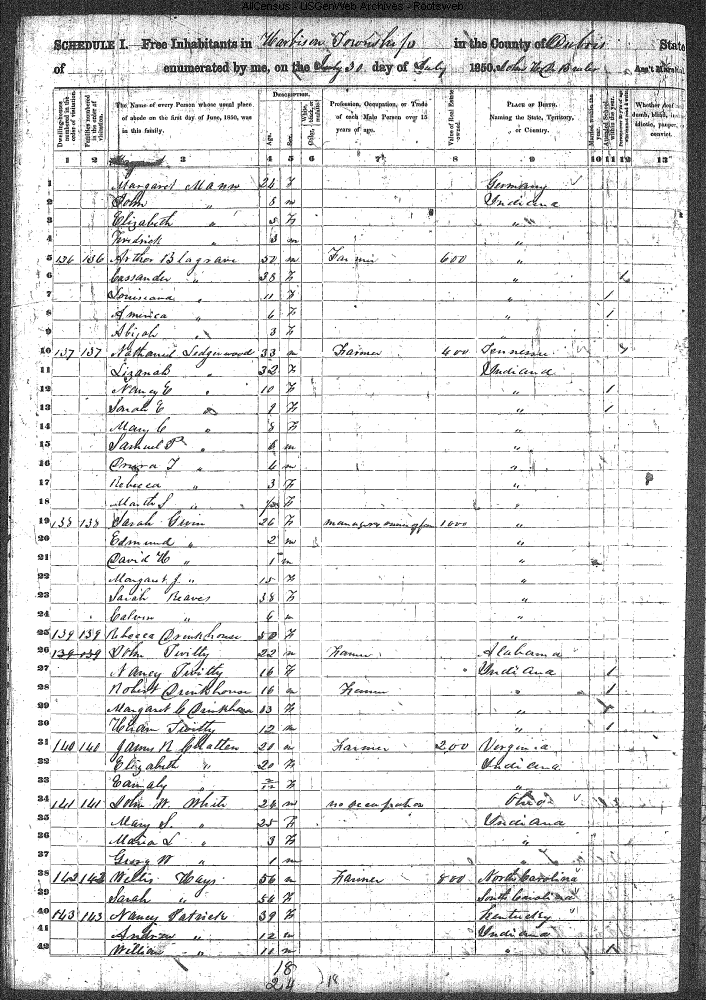 AllCensus - USGenWeb Archives - Rootsweb
SCHEDULE I.—Free Inhabitants in Harbison Township in the County of Dubois State
of enumerated by me, on the 30 day of July 1850. Ass't Marshal
Dwelling-houses numbered in the order of visitation. Families numbered in the order of visitation. The Name of every Person whose usual place of abode on the first day of June, 1850, was in this family. DESCRIPTION. Age. Sex. Color, White, black, or mulatto. Profession, Occupation, or Trade of each Male Person over 15 years of age. Value of Real Estate owned. PLACE OF BIRTH. Naming the State, Territory, or Country. Married within the year. Attended School within the year. Whether deaf dumb, blind, idiotic, pauper, convict.
1 2 3 4 5 6 7 8 9 10 11 12 13
1 Margaret Mann 26 F Germany
2 John " 8 m Indiana
3 Elizabeth " 5 F "
4 Fredrick " 3 m "
5 136 136 Arthor Blagrave 50 m Farmer 600 "
6 Cassander " 38 F "
7 Louiseana " 11 F " 1
8 America " 6 F " 1
9 Abijah " 3 F "
10 137 137 Nathaniel Ledgerwood 33 m Farmer 400 Tennessee
11 Lizanah " 32 F Indiana
12 Nancy E " 10 F " 1
13 Sarah E " 9 F " 1
14 Mary C " 8 F "
15 Samuel P " 6 m "
16 T " m "
17 Rebecca " 3 F "
18 Martha S " F "
19 138 138 Sarah 26 F 1000 "
20 Edmund " 2 m "
21 David H " 1 m "
22 Margaret J " 15 F "
23 Sarah Reaves 38 F "
24 Calvin " 6 m "
25 139 139 Rebecca Drinkhouse 50 F "
26 139 139 John Twitty 22 m Farmer Alabama
27 Nancy Twitty 16 F Indiana 1
28 Robert Drinkhouse 16 m Farmer " 1
29 Margaret C Drinkhouse 13 F "
30 Twitty 12 m " 1
31 140 140 James R Chatten 20 m Farmer 200 Verginia
32 Elizabeth " 20 F Indiana
33 F "
34 141 141 John W. White 26 m no occupation Ohio
35 Mary S " 25 F Indiana
36 Maria L " 3 F "
37 Georg W " 1 m "
38 142 142 Hays 56 m Farmer 800 North Carolina
39 Sarah " 54 F South Carolina
40 143 143 Nancy Patrick 39 F Kentucky
41 Andrew " 12 m Indiana
42 William " 11 m " 1
18
24 } 18